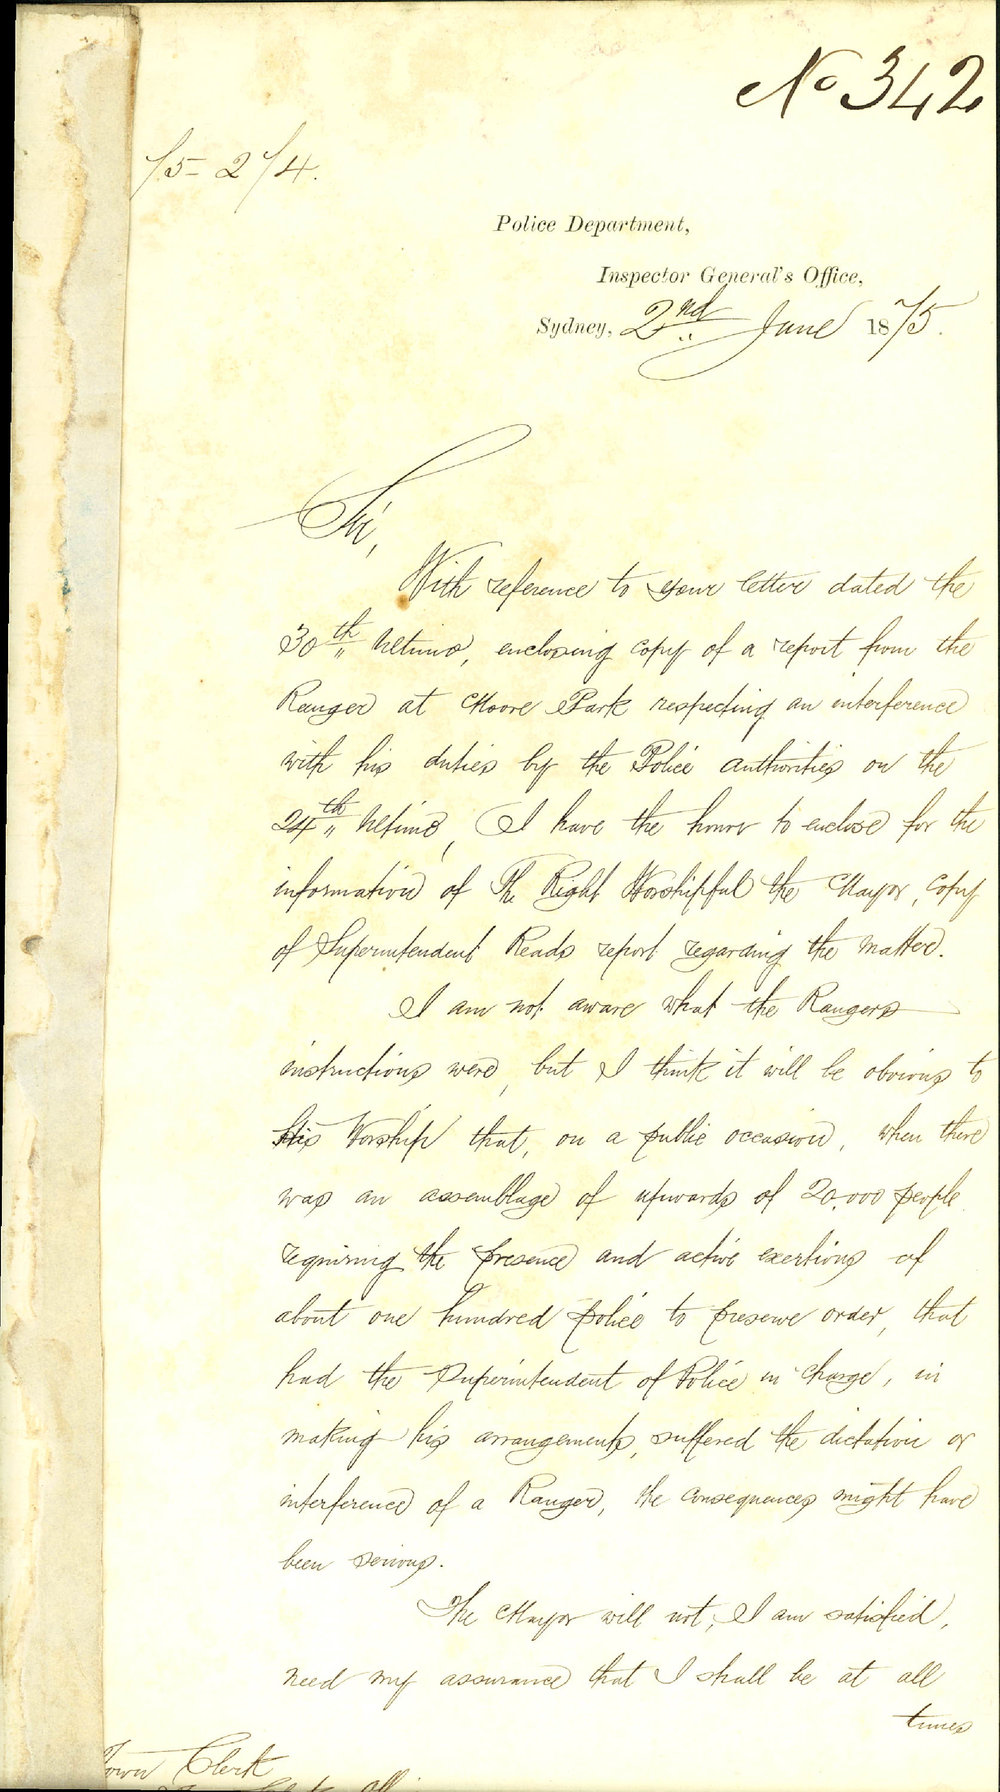 No 342
/5-2/4.
Police Department,
Inspector General's Office,
Sydney, 2nd June 1875.
Sir,
With reference to your letter dated the
30th Ultimo, enclosing copy of a report from the
Ranger at Moore Park respecting an interference
with his duties by the Police authorities on the
24th Ultimo, I have the honor to enclose for the
information of The Right Worshipful the Mayor, copy
of Superintendent Reads report regarding the matter.
I am not aware what the Rangers
instructions were, but I think it will be obvious to
His Worship that, on a public occasion, when there
was an assemblage of upwards of 20,000 people
requiring the presence and active exertions of
about one hundred police to preserve order, that
had the Superintendent of Police in charge, in
making his arrangements, suffered the dictation or
interference of a Ranger, the consequences might have
been serious.
The Mayor will not, I am satisfied,
need my assurance that I shall be at all
times
Town Clerk